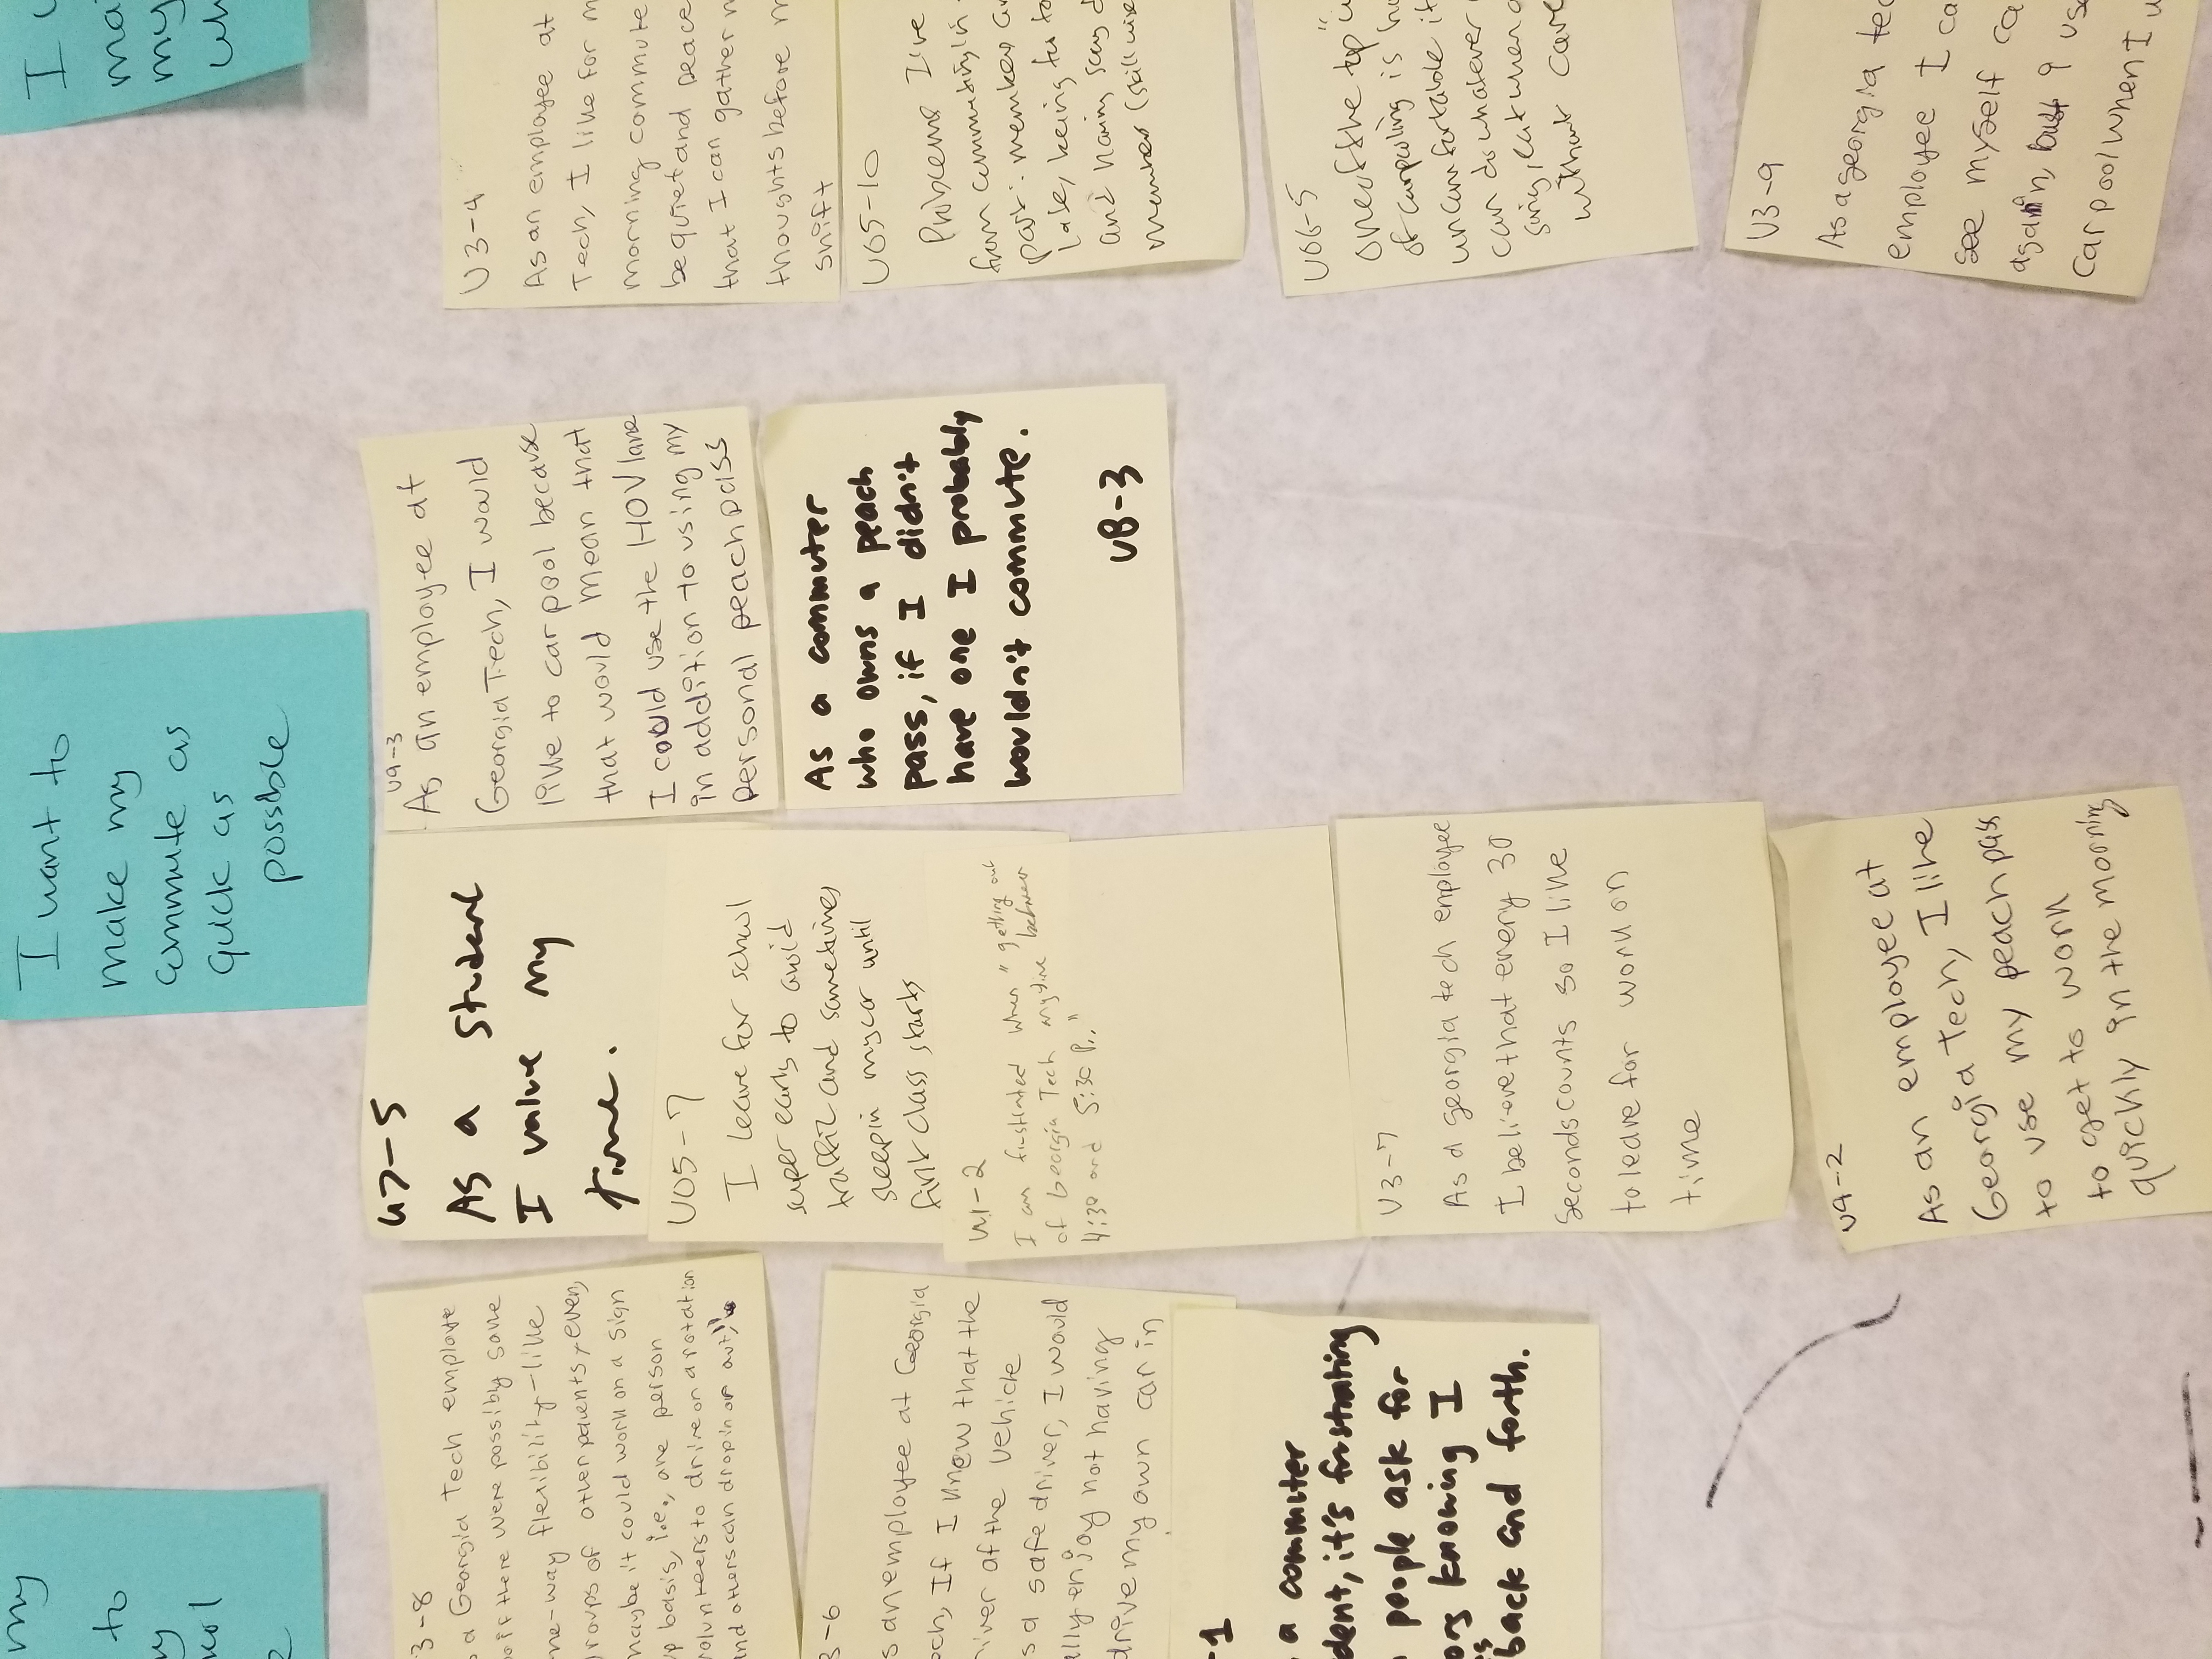 my
to
I want to
make my
commute as
quick as
possible
I
my
3-8
a Georgia Tech employee
if there were possibly some
ne-way flexibility-like
roups of other parents, even,
maybe it could work on a sign
p basis, i.e., one person
volunteers to drive on a rotation
and others can drop in or out,
3-6
s an employee at Georgia
ech, If I knew that the
river of the vehicle
s a safe driver, I would
ally enjoy not having
drive my own car in
-1
a commuter
dent, it's frustrating
people ask for
ors knowing I
back and forth.
U7-5
As a student
I value my
time.
U05-7
I leave for school
super early to avoid
traffic and sometimes
sleep in my car until
first class starts
U1-2
I am frustrated when "getting out
of Georgia Tech anytime between
4:30 and 5:30 P.."
U3-7
As a georgia tech employee
I believe that every 30
seconds counts so I like
to leave for work on
time
U9-2
As an employee at
Georgia Tech, I like
to use my peach pass
to get to work
quickly in the morning
U9-3
As an employee at
Georgia Tech, I would
like to car pool because
that would mean that
I could use the HOV lane
in addition to using my
personal peach pass
As a commuter
who owns a peach
pass, if I didn't
have one I probably
wouldn't commute.
U8-3
U3-4
As an employee at
Tech, I like for m
morning commute
be quiet and peace
that I can gather m
thoughts before m
shift
U05-10
Problems I've
from commuting in
past: members
late, being far
and having
member (skill wise
U06-5
One of the top "
of carpooling is
uncomfortable it
can do whatever
sing, eat when
without
U3-9
As a georgia tec
employee I ca
see myself ca
again, but I us
car pool when I w